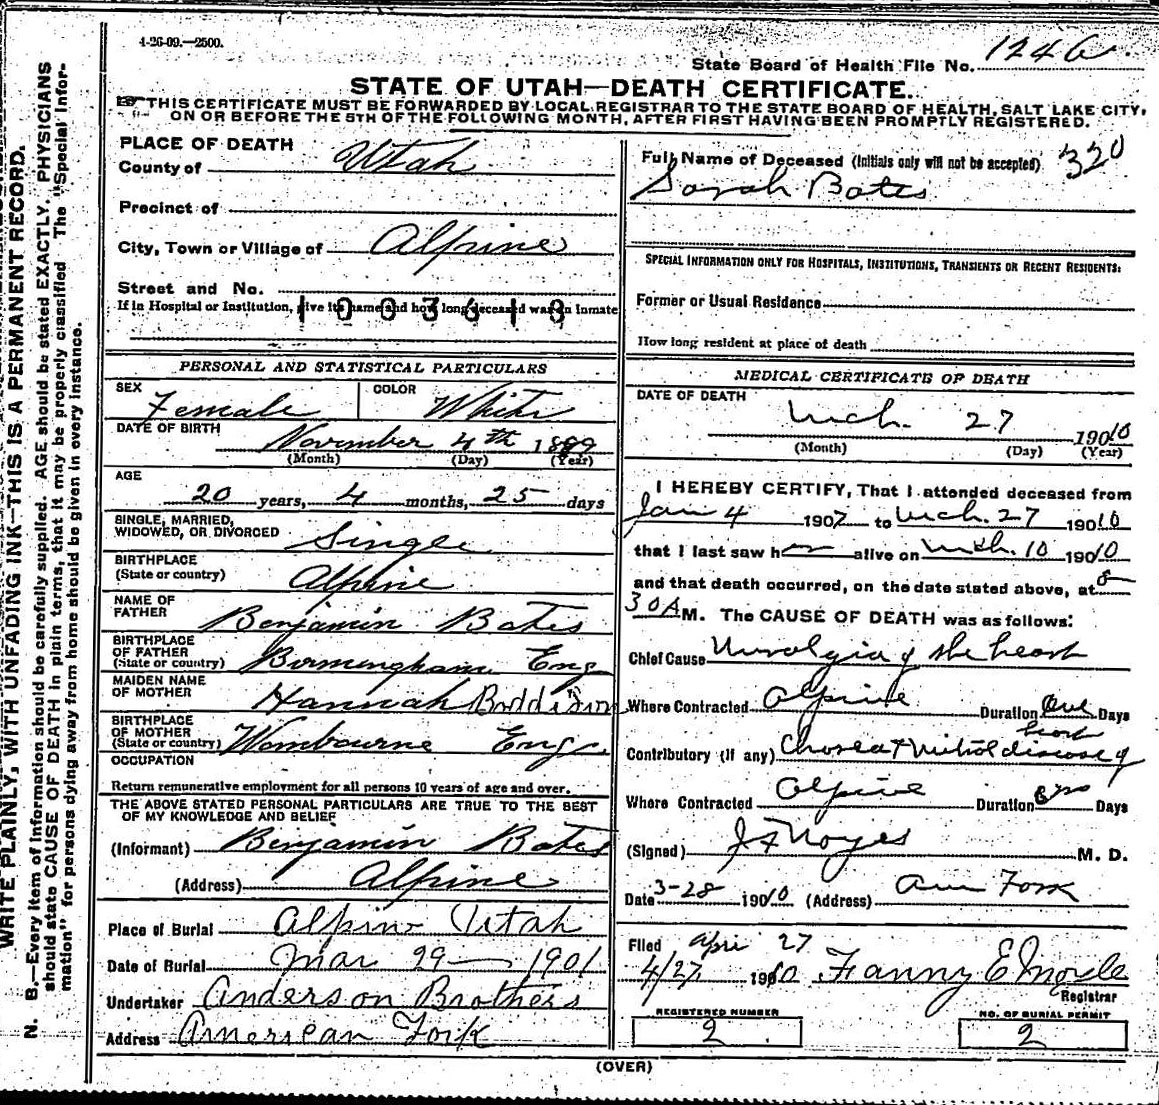 4-26-09.—2500.
State Board of Health File No. 1246
STATE OF UTAH—DEATH CERTIFICATE.
THIS CERTIFICATE MUST BE FORWARDED BY LOCAL REGISTRAR TO THE STATE BOARD OF HEALTH, SALT LAKE CITY,
ON OR BEFORE THE 5TH OF THE FOLLOWING MONTH, AFTER FIRST HAVING BEEN PROMPTLY REGISTERED.
WRITE PLAINLY, WITH UNFADING INK—THIS IS A PERMANENT RECORD.
N. B.—Every item of information should be carefully supplied. AGE should be stated EXACTLY. PHYSICIANS
should state CAUSE OF DEATH in plain terms, that it may be properly classified The "Special Infor-
mation" for persons dying away from home should be given in every instance.
PLACE OF DEATH
County of Utah
Precinct of
City, Town or Village of Alpine
Street and No.
If in Hospital or Institution, give its name and how long deceased was an inmate
1003618
PERSONAL AND STATISTICAL PARTICULARS
SEX Female COLOR White
DATE OF BIRTH November 4th 1889
(Month) (Day) (Year)
AGE
20 years, 4 months, 25 days
SINGLE, MARRIED,
WIDOWED, OR DIVORCED Single
BIRTHPLACE
(State or country) Alpine
NAME OF
FATHER Benjamin Bates
BIRTHPLACE
OF FATHER
(State or country) Birmingham Eng
MAIDEN NAME
OF MOTHER Hannah Boddison
BIRTHPLACE
OF MOTHER
(State or country) Wombourne Eng
OCCUPATION
Return remunerative employment for all persons 10 years of age and over.
THE ABOVE STATED PERSONAL PARTICULARS ARE TRUE TO THE BEST
OF MY KNOWLEDGE AND BELIEF
(Informant) Benjamin Bates
(Address) Alpine
Place of Burial Alpine Utah
Date of Burial Mar 29 — 1901
Undertaker Anderson Brothers
Address American Fork
Full Name of Deceased (Initials only will not be accepted) 320
Sarah Bates
SPECIAL INFORMATION ONLY FOR HOSPITALS, INSTITUTIONS, TRANSIENTS OR RECENT RESIDENTS:
Former or Usual Residence
How long resident at place of death
MEDICAL CERTIFICATE OF DEATH
DATE OF DEATH
Mch. 27 19010
(Month) (Day) (Year)
I HEREBY CERTIFY, That I attended deceased from
Jan 4 1907 to Mch. 27 19010
that I last saw her alive on Mch. 10 19010
and that death occurred, on the date stated above, at 8
30 A M. The CAUSE OF DEATH was as follows:
Chief Cause Nuralgia of the heart
Where Contracted Alpine Duration One Days
Contributory (if any) Chorea & Mitral disease of heart
Where Contracted Alpine Duration Days
(Signed) J F Noyes M. D.
Date 3-28 19010 (Address) Am Fork
Filed April 27
4/27 1910 Fanny E Moyle
Registrar
REGISTERED NUMBER
2
NO. OF BURIAL PERMIT
2
(OVER)